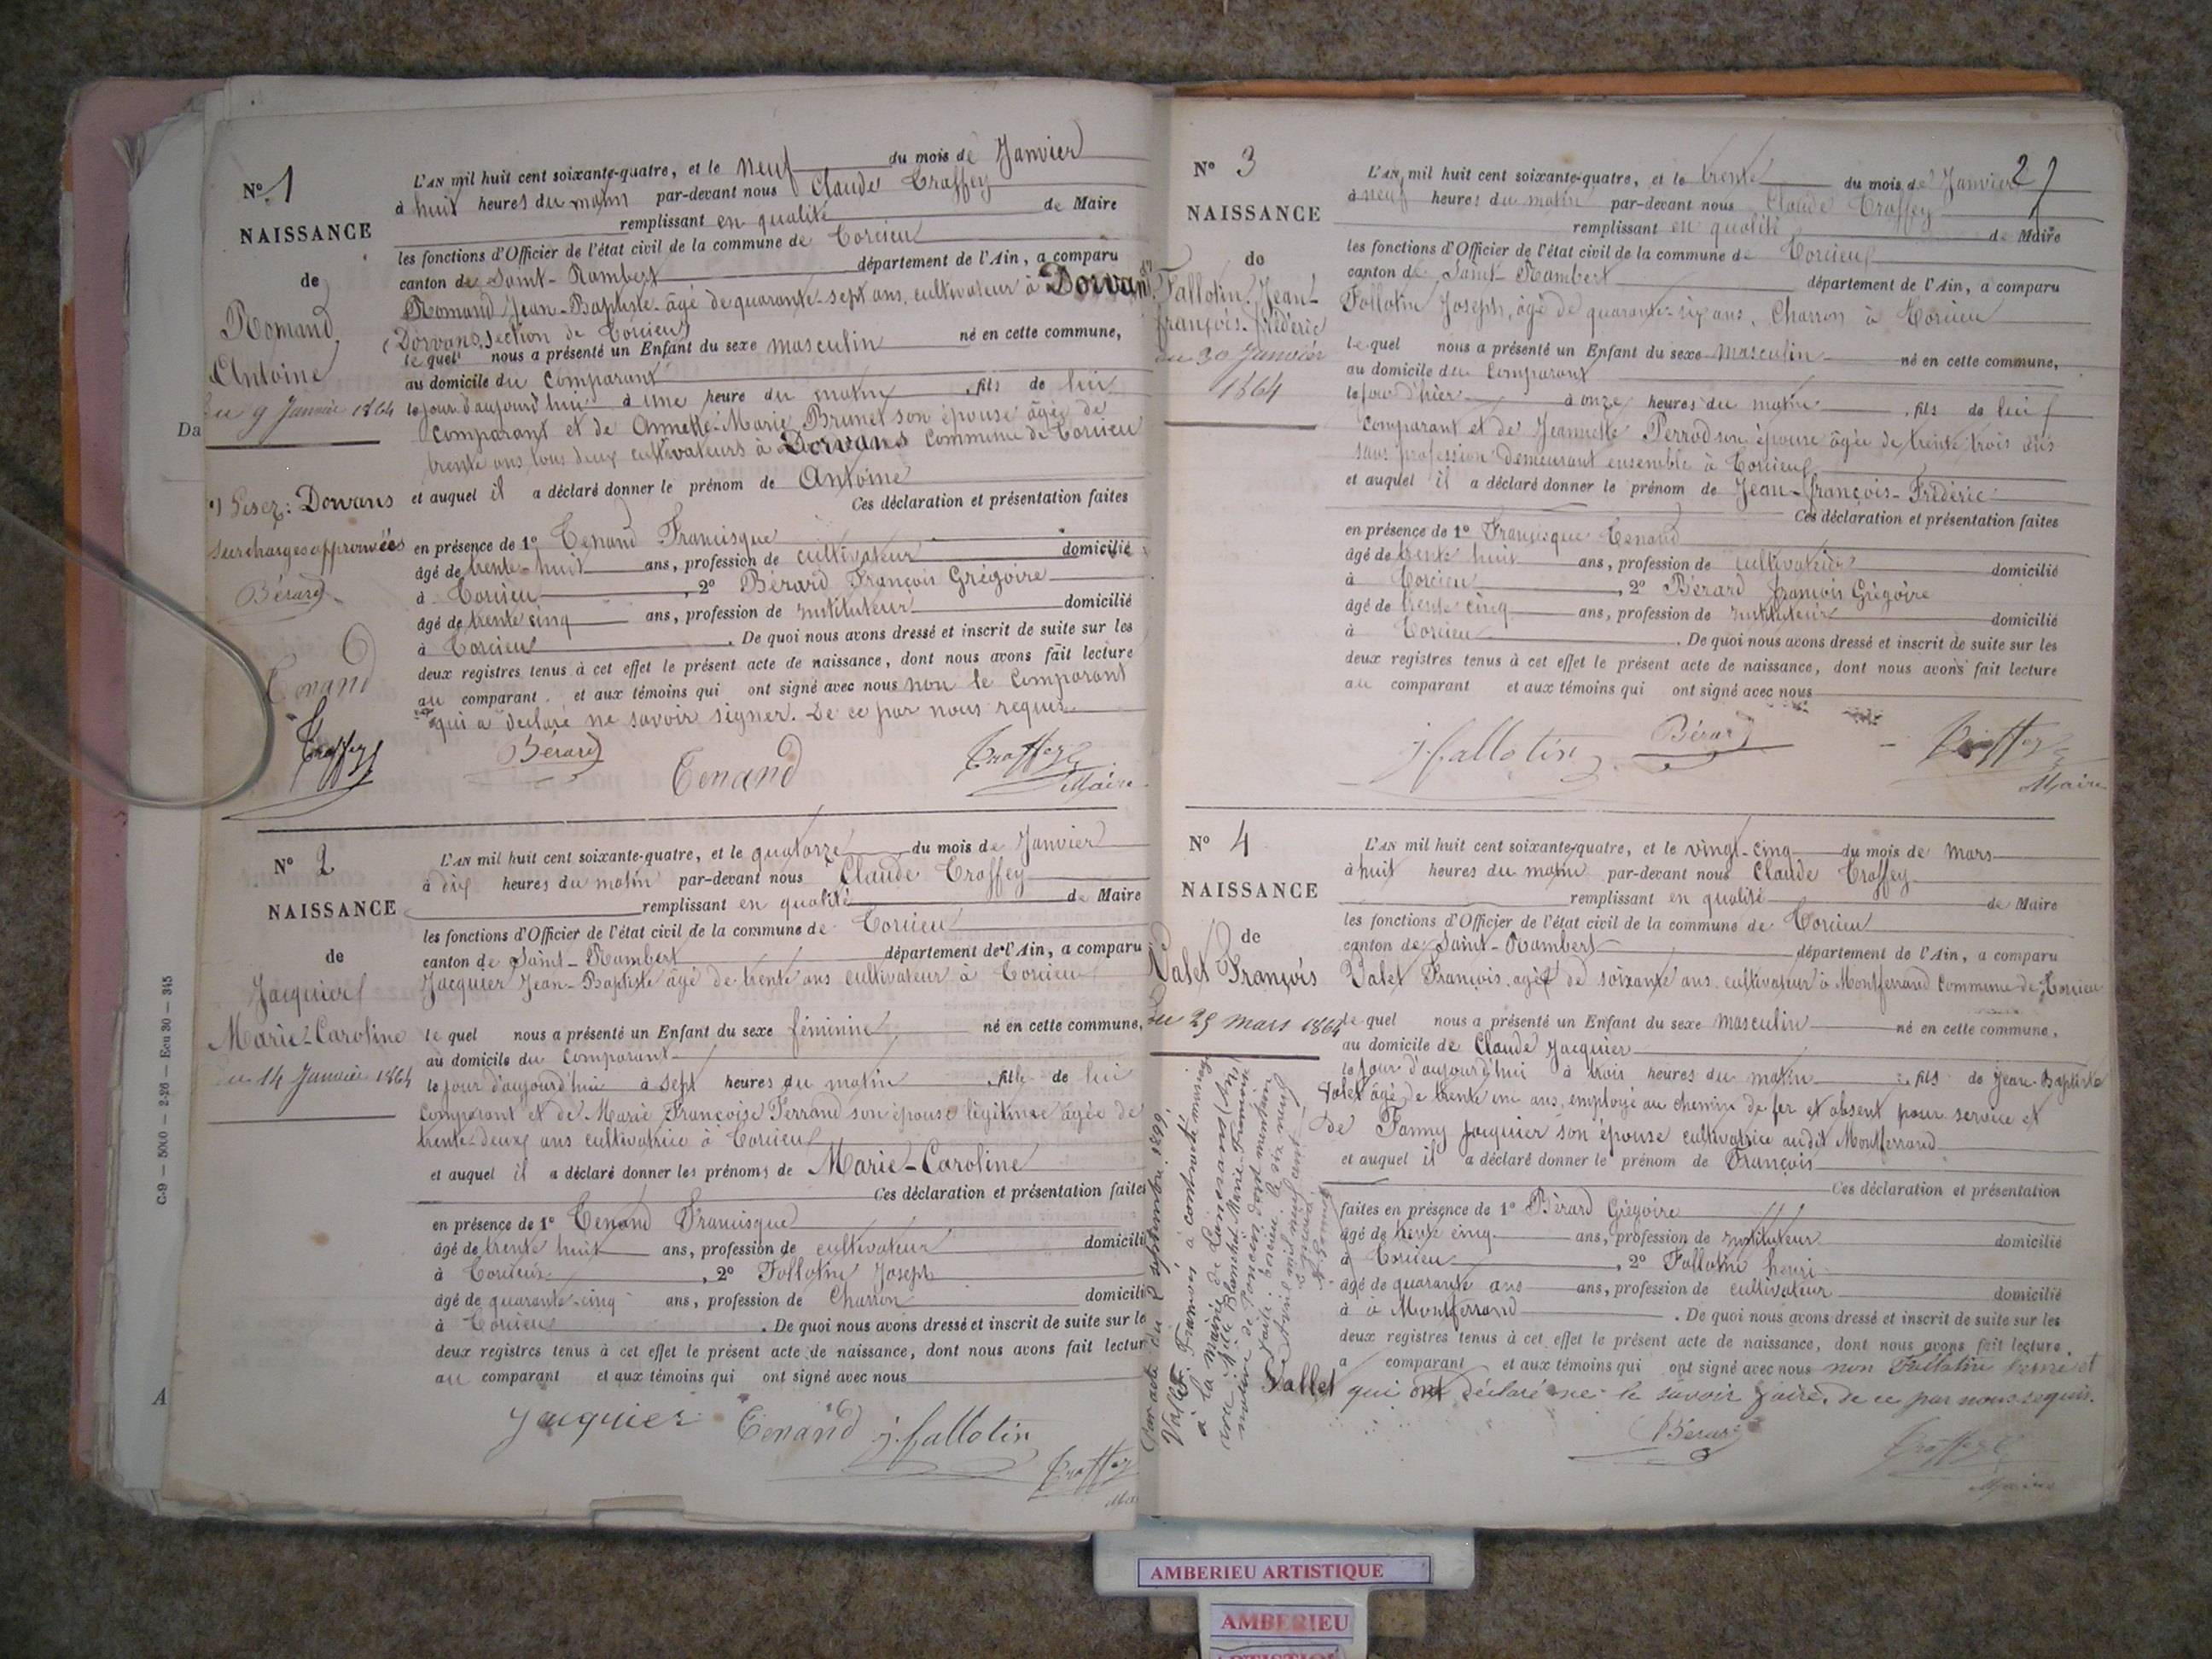 N° 1
NAISSANCE
de
Romand
Antoine
du 9 Janvier 1864
L'AN mil huit cent soixante-quatre, et le neuf du mois de Janvier
à huit heures du matin par-devant nous Claude Troffey
remplissant en qualité de Maire
les fonctions d'Officier de l'état civil de la commune de Torcieu
canton de Saint-Rambert département de l'Ain, a comparu
Romand Jean-Baptiste âgé de quarante-sept ans, cultivateur à Dorvans
Dorvans, section de Torcieu
le quel nous a présenté un Enfant du sexe masculin né en cette commune,
au domicile du Comparant
le jour d'aujourd'hui à une heure du matin, fils de lui
comparant et de Annette-Marie Brunet son épouse âgée de
trente ans, tous deux cultivateurs à Dorvans Commune de Torcieu
et auquel il a déclaré donner le prénom de Antoine
Ces déclaration et présentation faites
en présence de 1° Tenand Francisque
âgé de trente-huit ans, profession de cultivateur domicilié
à Torcieu, 2° Bérard François Grégoire
âgé de trente cinq ans, profession de instituteur domicilié
à Torcieu. De quoi nous avons dressé et inscrit de suite sur les
deux registres tenus à cet effet le présent acte de naissance, dont nous avons fait lecture
au comparant et aux témoins qui ont signé avec nous non le Comparant
qui a déclaré ne savoir signer. De ce par nous requis
Bérard Tenand Troffey
Maire
Lisez: Dorvans
surcharges approuvées
Bérard
Tenand
Troffey
Da
C-9 — 5000 — 2-26 — Ecu 30 — 345
A
N° 2
NAISSANCE
de
Jacquier
Marie-Caroline
du 14 Janvier 1864
L'AN mil huit cent soixante-quatre, et le quatorze du mois de Janvier
à dix heures du matin par-devant nous Claude Troffey
remplissant en qualité de Maire
les fonctions d'Officier de l'état civil de la commune de Torcieu
canton de Saint-Rambert département de l'Ain, a comparu
Jacquier Jean-Baptiste âgé de trente ans cultivateur à Torcieu
le quel nous a présenté un Enfant du sexe féminin né en cette commune,
au domicile du Comparant
le jour d'aujourd'hui à sept heures du matin, fille de lui
Comparant et de Marie Françoise Ferrand son épouse légitime âgée de
trente-deux ans cultivatrice à Torcieu
et auquel il a déclaré donner les prénoms de Marie-Caroline
Ces déclaration et présentation faites
en présence de 1° Tenand Francisque
âgé de trente huit ans, profession de cultivateur domicili
à Torcieu, 2° Fallotin Joseph
âgé de quarante-cinq ans, profession de Charron domicili
à Torcieu. De quoi nous avons dressé et inscrit de suite sur le
deux registres tenus à cet effet le présent acte de naissance, dont nous avons fait lectur
au comparant et aux témoins qui ont signé avec nous
Jacquier Tenand J. fallotin
Troffey
N° 3
NAISSANCE
de
Fallotin Jean-
françois-fréderic
du 30 Janvier
1864
2
L'AN mil huit cent soixante-quatre, et le trente du mois de Janvier
à neuf heures du matin par-devant nous Claude Troffey
remplissant en qualité de Maire
les fonctions d'Officier de l'état civil de la commune de Torcieu
canton de Saint-Rambert département de l'Ain, a comparu
Fallotin Joseph, âgé de quarante-six ans, Charron à Torcieu
le quel nous a présenté un Enfant du sexe Masculin né en cette commune,
au domicile du Comparant
le jour d'hier à onze heures du matin, fils de lui
Comparant et de Jeannette Perrod son épouse âgée de trente trois ans
sans profession demeurant ensemble à Torcieu
et auquel il a déclaré donner le prénom de Jean-françois-Frédéric
Ces déclaration et présentation faites
en présence de 1° Francisque Tenand
âgé de trente huit ans, profession de cultivateur domicilié
à Torcieu, 2° Bérard françois Grégoire
âgé de trente cinq ans, profession de instituteur domicilié
à Torcieu. De quoi nous avons dressé et inscrit de suite sur les
deux registres tenus à cet effet le présent acte de naissance, dont nous avons fait lecture
au comparant et aux témoins qui ont signé avec nous
J fallotin Bérard Troffey
Maire
N° 4
NAISSANCE
de
Valet François
du 25 mars 1864
L'AN mil huit cent soixante-quatre, et le vingt-cinq du mois de mars
à huit heures du matin par-devant nous Claude Troffey
remplissant en qualité de Maire
les fonctions d'Officier de l'état civil de la commune de Torcieu
canton de Saint-Rambert département de l'Ain, a comparu
Valet François, agé de soixante ans, cultivateur à Montferrand Commune de Torcieu
le quel nous a présenté un Enfant du sexe masculin né en cette commune,
au domicile de Claude Jacquier
le jour d'aujourd'hui à trois heures du matin, fils de Jean-Baptiste
Valet âgé de trente un ans, employé au chemin de fer et absent pour service et
de Fanny Jacquier son épouse cultivatrice audit Montferrand
et auquel il a déclaré donner le prénom de François
Ces déclaration et présentation
faites en présence de 1° Bérard Grégoire
âgé de trente cinq ans, profession de instituteur domicilié
à Torcieu, 2° Fallotin henri
âgé de quarante ans ans, profession de cultivateur domicilié
à à Montferrand. De quoi nous avons dressé et inscrit de suite sur les
deux registres tenus à cet effet le présent acte de naissance, dont nous avons fait lecture.
a comparant et aux témoins qui ont signé avec nous non Fallotin henri et
Vallet qui ont déclaré ne le savoir faire, de ce par nous requis.
Bérard Troffey
Maire
Par acte du 2 septembre 1899,
Vallet François a contracté mariage
à la mairie de
avec Melle Blanchet Marie-
dont mention
AMBERIEU ARTISTIQUE
AMBERIEU
ARTISTIQUE